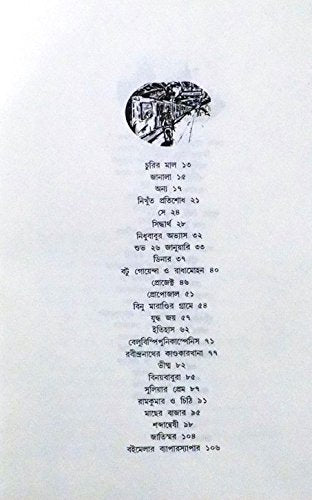 চুরির মাল ১৩
জানালা ১৫
অন্য ১৭
নিখুঁত প্রতিশোধ ২১
সে ২৪
সিদ্ধার্থ ২৮
নিধুবাবুর অভ্যাস ৩২
শুভ ২৬ জানুয়ারি ৩৩
ডিনার ৩৭
বটু গোয়েন্দা ও রাধামোহন ৪০
প্রোজেক্ট ৪৬
প্রোপোজাল ৫১
বিনু মারাণ্ডির গ্রামে ৫৪
যুদ্ধ জয় ৫৭
ইতিহাস ৬২
বেলুবিম্পিপুনিকাম্পেনিস ৭১
রবীন্দ্রনাথের কাণ্ডকারখানা ৭৭
ভীষ্ম ৮২
বিনয়বাবুরা ৮৫
সুলিয়ার প্রেম ৮৭
রামকুমার ও চিঠি ৯১
মাছের বাজার ৯৫
শব্দান্বেষী ৯৮
জাতিস্মর ১০৪
বইমেলার ব্যাপারস্যাপার ১০৬